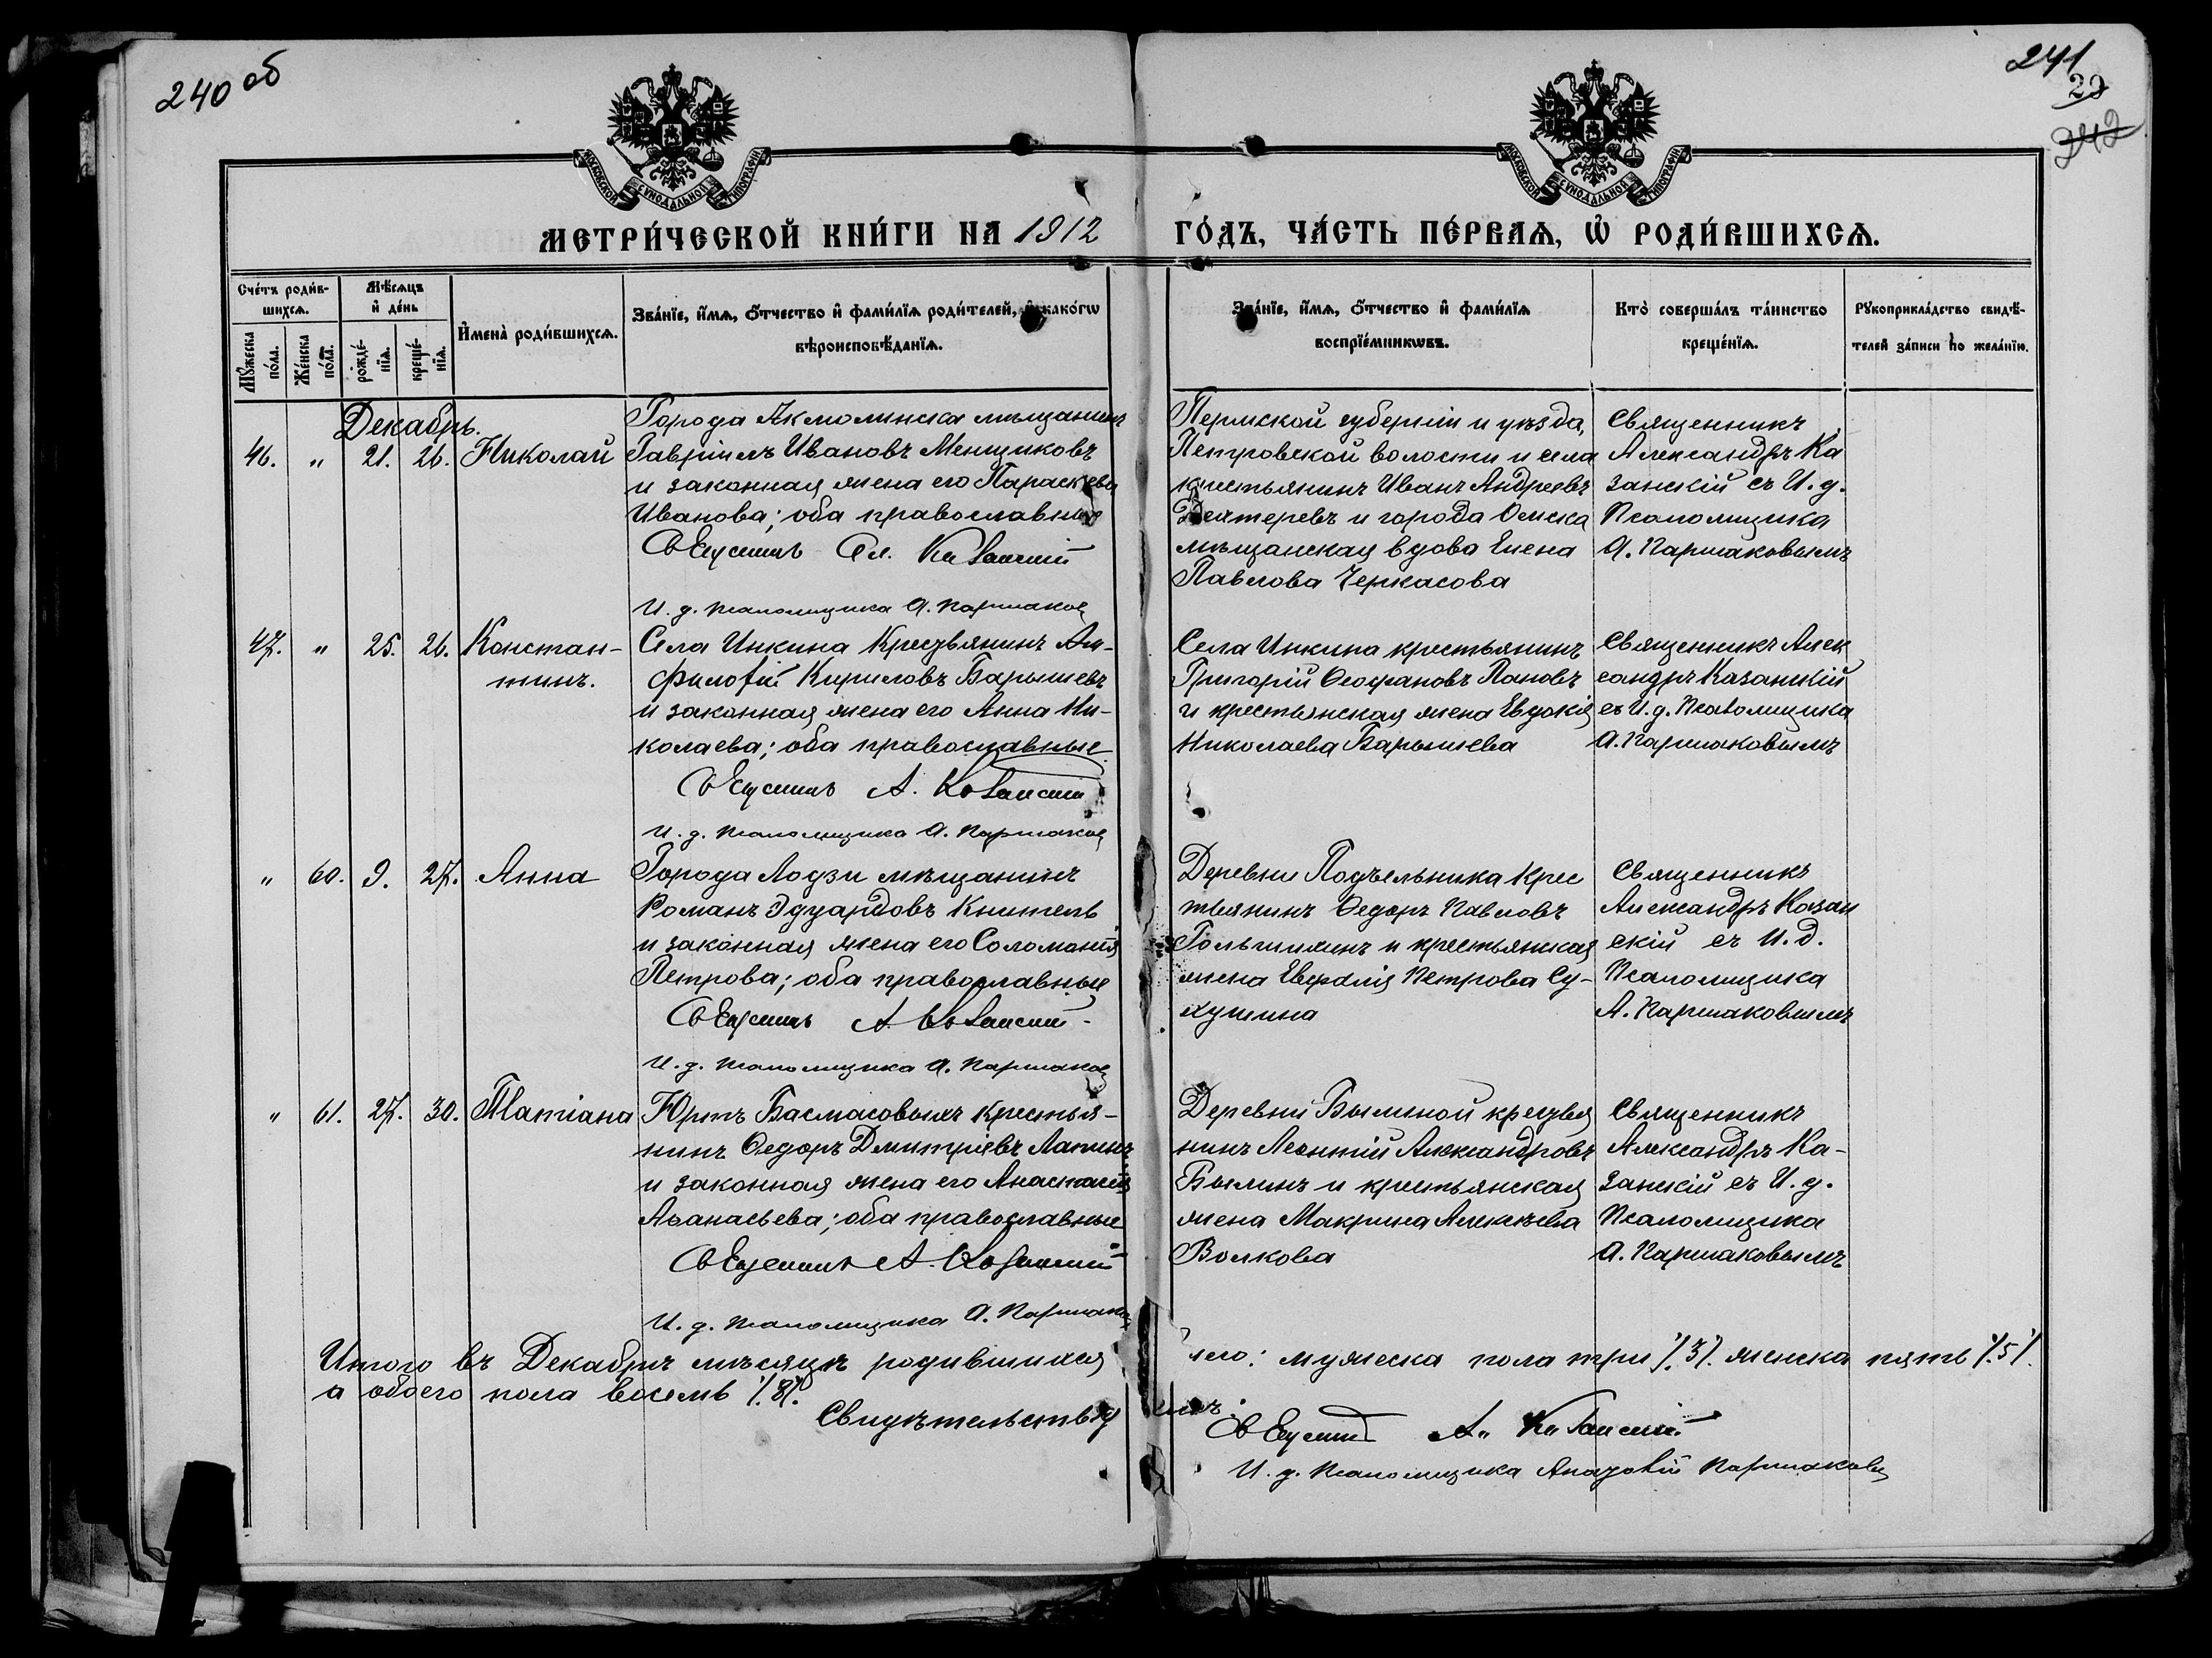 240 об
241
29
242
МОСКОВСКОЙ СѴНОДАЛЬНОЙ ТИПОГРАФІИ
МОСКОВСКОЙ СѴНОДАЛЬНОЙ ТИПОГРАФІИ
МЕТРИ́ЧЕСКОЙ КНИ́ГИ НА 1912 ГО́ДЪ, ЧА́СТЬ ПЕ́РВАѦ, Ѡ҆ РОДИ́ВШИХСѦ.
Сче́тъ роди́в-
шихсѧ.
Мѣ́сѧцъ
и҆ де́нь
Мꙋ́жеска
по́ла.
Же́нска
по́ла.
рожде́-
нїѧ.
креще́-
нїѧ.
И҆мена̀ роди́вшихсѧ.
Зва́нїе, и҆́мѧ, ѻ҆́тчество и҆ фами́лїѧ роди́телей, и҆ како́гѡ
вѣроисповѣ́данїѧ.
Зва́нїе, и҆́мѧ, ѻ҆́тчество и҆ фами́лїѧ
воспрїе́мникѡвъ.
Кто̀ соверша́лъ та́инство
креще́нїѧ.
Рꙋкоприкла́дство свидѣ́-
телей за́писи по жела́нїю.
Декабрь.
46. " 21. 26. Николай
Города Акмолинска мѣщанинъ
Гавріилъ Ивановъ Менщиковъ
и законная жена его Параскева
Иванова; оба православные
Священникъ Ал. Казанскій
И. д. псаломщика А. Паршаковъ
Пермской губерніи и уѣзда,
Петровской волости и села
крестьянинъ Иванъ Андреевъ
Дехтеревъ и города Омска
мѣщанская вдова Елена
Павлова Черкасова
Священникъ
Александръ Ка
занскій съ И. д.
Псаломщика
А. Паршаковымъ
47. " 25. 26. Констан-
тинъ.
Села Инкина Крестьянинъ Ам-
филофій Кириловъ Барышевъ
и законная жена его Анна Ни-
колаева; оба православные
Священникъ А. Казанскій
И. д. псаломщика А. Паршаковъ
Села Инкина крестьянинъ
Григорій Ѳеофановъ Пановъ
и крестьянская жена Евдокія
Николаева Барышева
Священникъ Алек
сандръ Казанскій
съ И. д. Псаломщика
А. Паршаковымъ
" 60. 9. 27. Анна
Города Лодзи мѣщанинъ
Романъ Эдуардовъ Книтель
и законная жена его Соломонія
Петрова; оба православные
Священникъ А. Казанскій
И. д. псаломщика А. Паршаковъ
Деревни Подъельника Крес
тьянинъ Ѳедоръ Павловъ
Гольчихинъ и крестьянская
жена Петрова Су-
хушина
Священникъ
Александръ Казан
скій съ И. д.
Псаломщика
А. Паршаковымъ
" 61. 27. 30. Татіана
Юртъ Басмасовыхъ Крестья-
нинъ Ѳедоръ Дмитріевъ Лапинъ
и законная жена его Анастасія
Аѳанасьева; оба православные
Священникъ А. Казанскій
И. д. псаломщика А. Паршаковъ
Деревни Былиной крестья
нинъ Леонтій Александровъ
Былинъ и крестьянская
жена Макрина Алексѣева
Волкова
Священникъ
Александръ Ка-
занскій съ И. д.
Псаломщика
А. Паршаковымъ
Итого въ Декабрѣ мѣсяцѣ родившихся
было: мужеска пола три /.3/. женска пять /.5/.
а обоего пола восемь /.8/.
Свидѣтельству
емъ:
Священникъ А. Казанскій
И. д. Псаломщика Паршаковъ